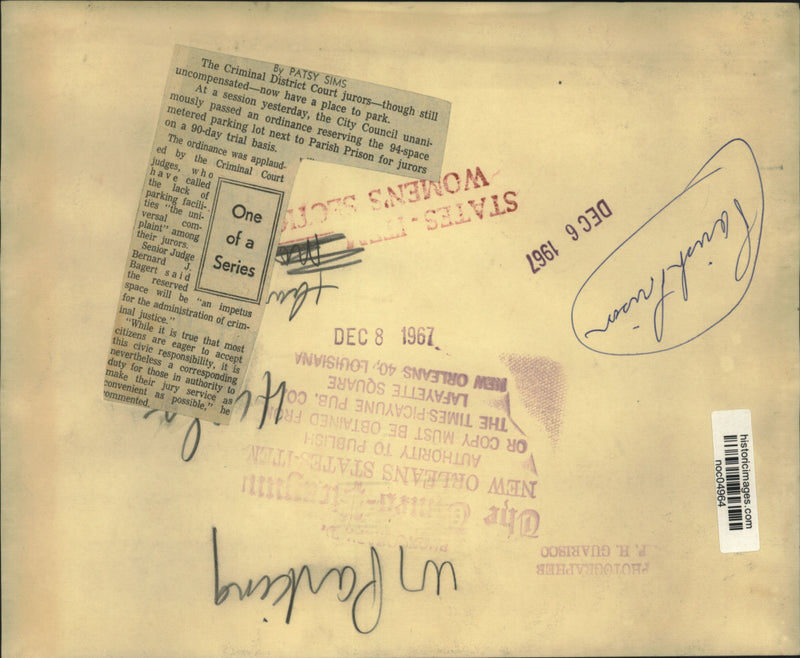 By PATSY SIMS
The Criminal District Court jurors—though still
uncompensated—now have a place to park.
At a session yesterday, the City Council unani-
mously passed an ordinance reserving the 94-space
metered parking lot next to Parish Prison for jurors
on a 90-day trial basis.
The ordinance was applaud-
ed by the Criminal Court
judges, who
have called
the lack of
parking facili-
ties "the uni-
versal com-
plaint" among
their jurors.
Senior Judge
Bernard J.
Bagert said
the reserved
space will be "an impetus
for the administration of crim-
inal justice."
"While it is true that most
citizens are eager to accept
this civic responsibility, it is
nevertheless a corresponding
duty for those in authority to
make their jury service as
convenient as possible," he
commented.
One
of a
Series
STATES-ITEM
WOMEN'S SECTI
DEC 6 1967
Parish Prison
DEC 8 1967
The Times-Picayune
NEW ORLEANS STATES-ITEM
AUTHORITY TO PUBLISH
OR COPY MUST BE OBTAINED FROM
THE TIMES-PICAYUNE PUB. CO.
LAFAYETTE SQUARE
NEW ORLEANS 40, LOUISIANA
PHOTOGRAPHER
P. H. GUARISCO
Parking
historicimages.com
noc04964